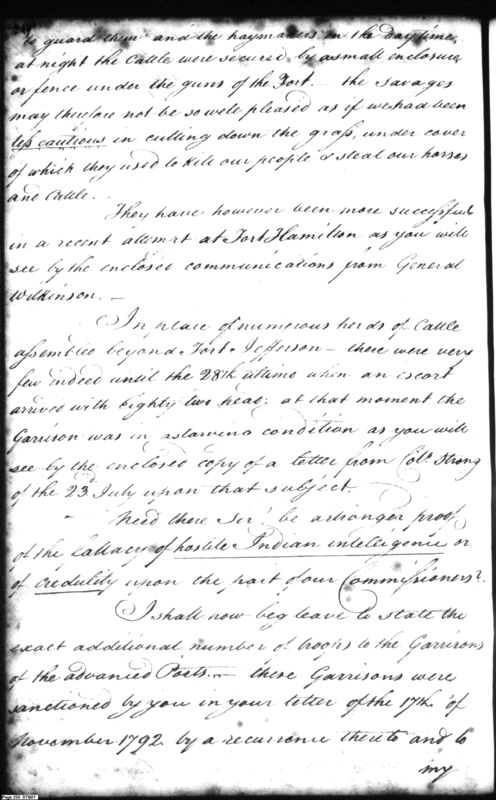 to guard them and the haymakers in the day time,
at night the Cattle were secured by a small enclosure
or fence under the guns of the Fort. – the Savages
may therefore not be so well pleased as if we had been
less cautious in cutting down the grass, under cover
of which they used to kill our people & steal our horses
and Cattle. –
They have however been more successful
in a recent attempt at Fort Hamilton as you will
see by the enclosed communications from General
Wilkinson. –
In place of numerous herds of Cattle
assembled beyond Fort Jefferson – there were very
few indeed until the 28th ultimo when an escort
arrived with Eighty two head; at that moment the
Garrison was in a starving condition as you will
see by the enclosed copy of a letter from Colo. Strong
of the 23d July upon that subject.
Need there Sir! be a stronger proof
of the fallacy of hostile Indian intelligence or
of credulity upon the part of our Commissioners?
I shall now beg leave to state the
exact additional number of troops to the Garrisons
of the advanced Posts. – these Garrisons were
sanctioned by you in your letter of the 17th of
November 1792 by a recurrence thereto and to
my